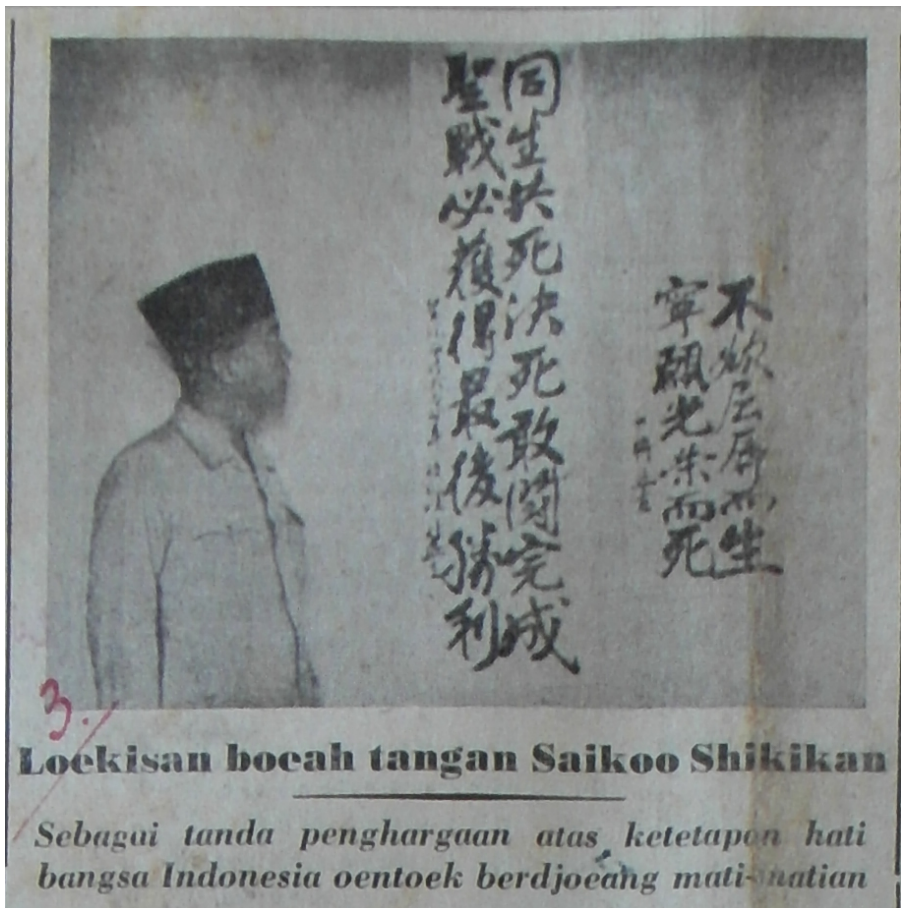 不欲屈辱而生
寧願光栄而死
同生共死決死敢闘完成
聖戰必獲得最後勝利
3.
Loekisan boeah tangan Saikoo Shikikan
Sebagai tanda penghargaan atas ketetapan hati
bangsa Indonesia oentoek berdjoeang mati-matian